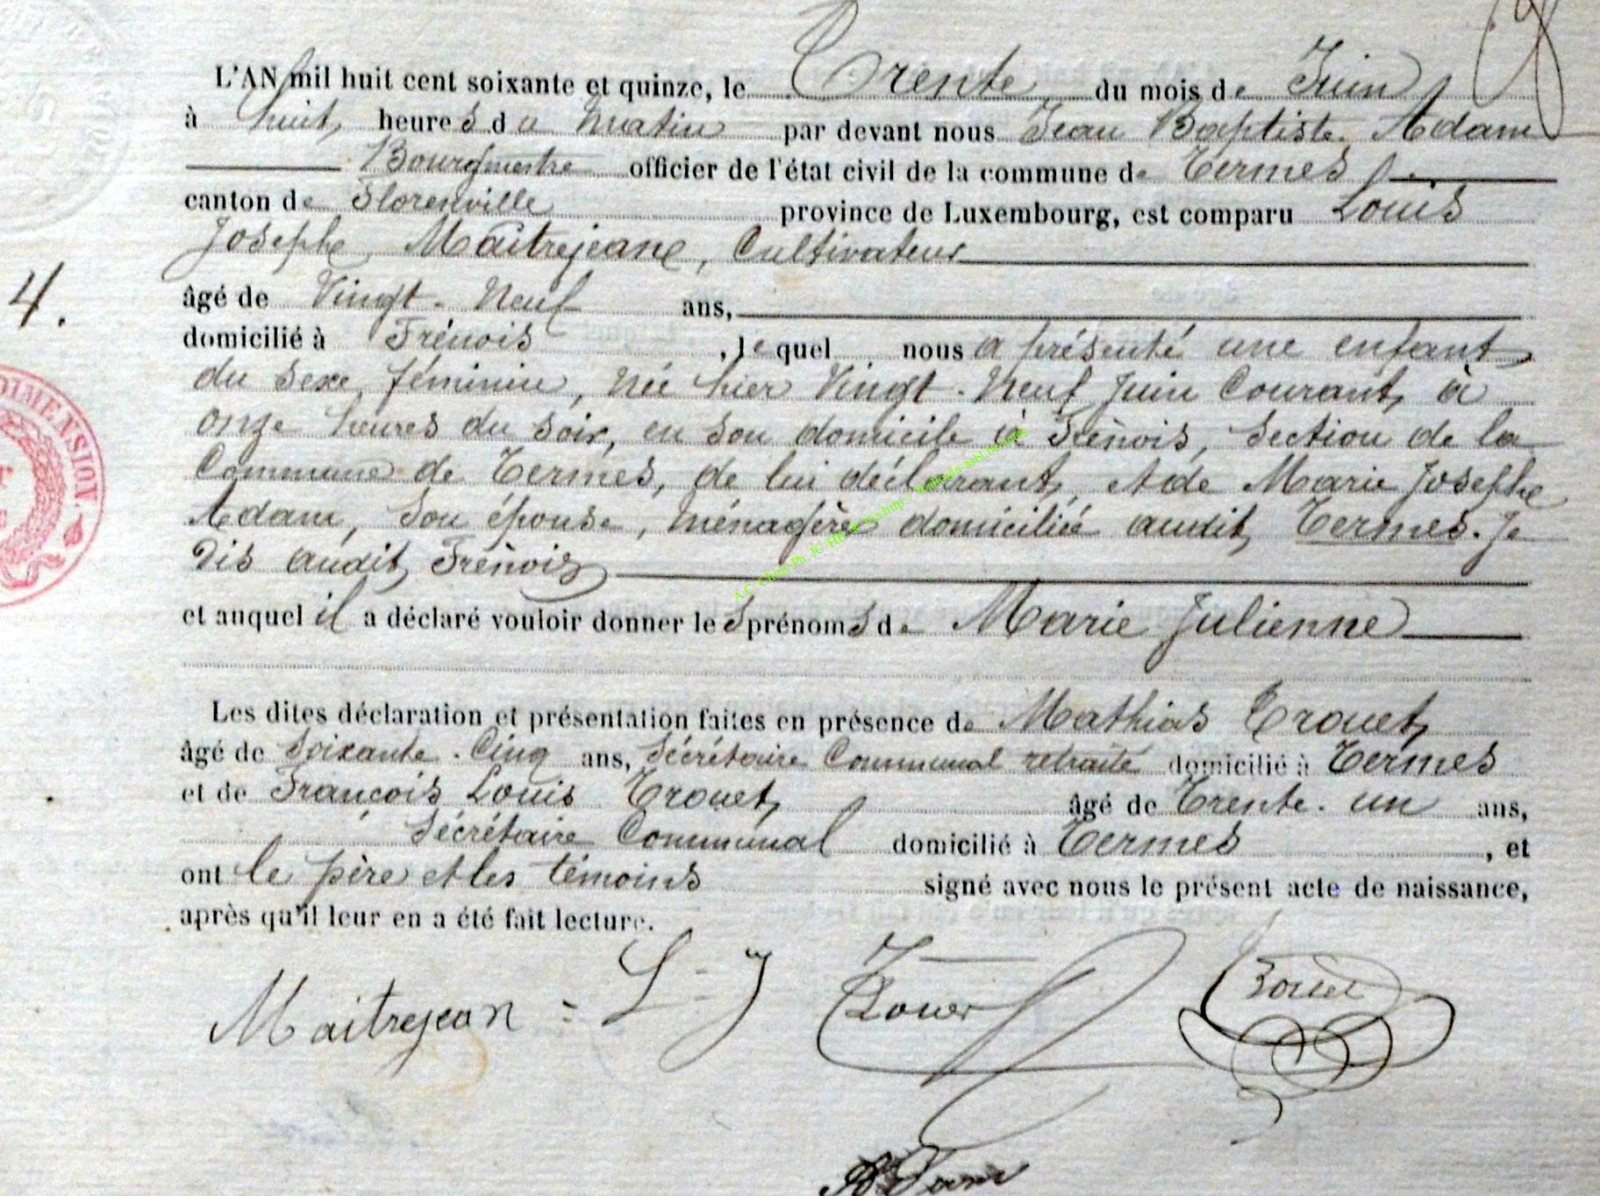 L'AN mil huit cent soixante et quinze, le Trente du mois de Juin
à huit heures du matin par devant nous Jean Baptiste Adam
Bourgmestre officier de l'état civil de la commune de Termes
canton de Florenville province de Luxembourg, est comparu Louis
Josephe Maitrejean, Cultivateur
4.
âgé de Vingt-Neuf ans,
domicilié à Frénois, lequel nous a présenté une enfant
du sexe féminin, née hier Vingt-Neuf Juin Courant, à
onze heures du soir, en son domicile à Frénois, section de la
Commune de Termes, de lui déclarant, et de Marie Josephe
Adam, son épouse, ménagère domiciliée audit Termes. Je
Dis audit Frénois
et auquel il a déclaré vouloir donner les prénoms de Marie Julienne
Les dites déclaration et présentation faites en présence de Mathias Trouet
âgé de soixante-Cinq ans, sécrétaire Communal retraité domicilié à Termes
et de François Louis Trouet, âgé de Trente-un ans,
sécrétaire Communal domicilié à Termes, et
ont le père et les témoins signé avec nous le présent acte de naissance,
après qu'il leur en a été fait lecture.
DIMENSION.
Maitrejean = L-J